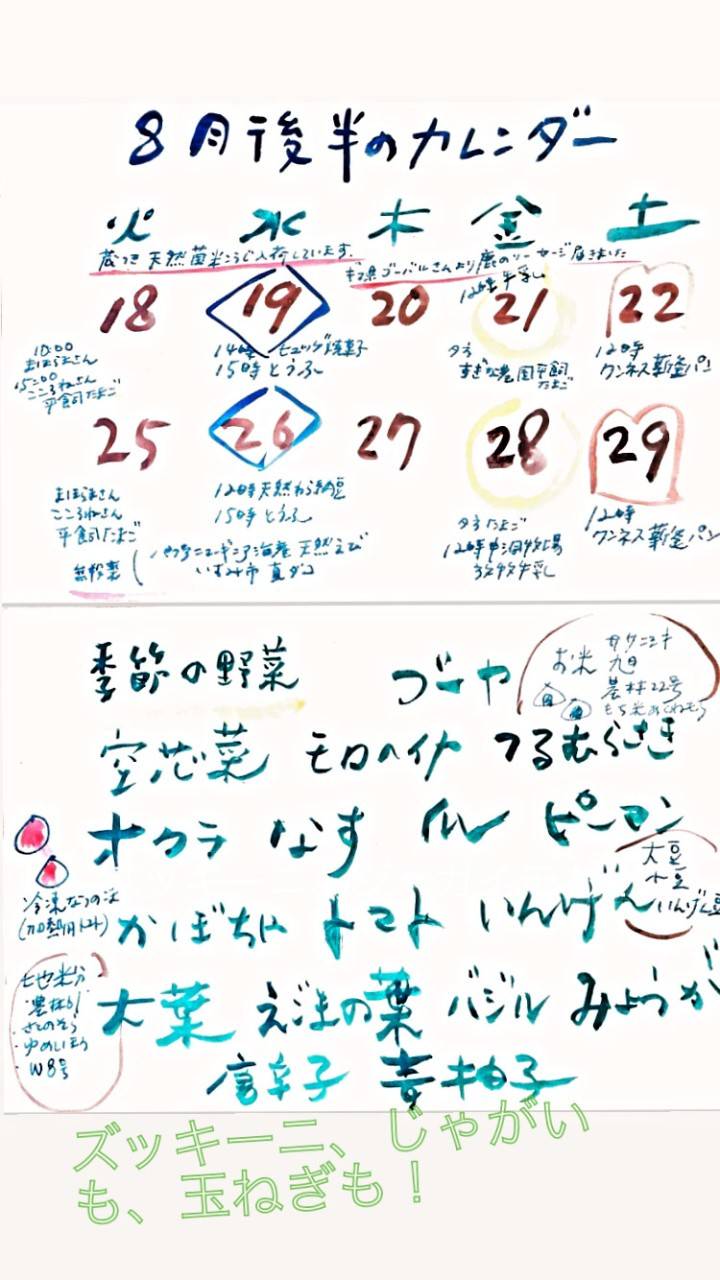 8月後半のカレンダー
火 水 木 金 土
蔵つき 天然菌米こうじ入荷しています。
ゴーバルさんより鹿のソーセージ届きました
12時牛乳
18 19 20 21 22
10:00
まほろばさん
15:00
こころねさん
平飼たまご
14時 焼菓子
15時とうふ
夕方
すぎな農園平飼
たまご
12時
クンネス薪釜パン
25 26 27 28 29
まほろばさん
こころねさん
平飼たまご
12時天然わら納豆
15時とうふ
パプアニューギニア海産 天然えび
いすみ市 真ダコ
夕方たまご
12時
放牧牛乳
12時
クンネス薪釜パン
季節の野菜 ゴーヤ
お米
ササニシキ
旭
農林22号
もち米
空芯菜 モロヘイヤ つるむらさき
オクラ なす ピーマン
大豆
小豆
いんげん豆
冷凍
(加熱用トマト)
かぼちゃ トマト いんげん
地粉
農林61
さとのそら
W8号
大葉 えごまの葉 バジル みょうが
唐辛子 青柚子
ズッキーニ、じゃがい
も、玉ねぎも！